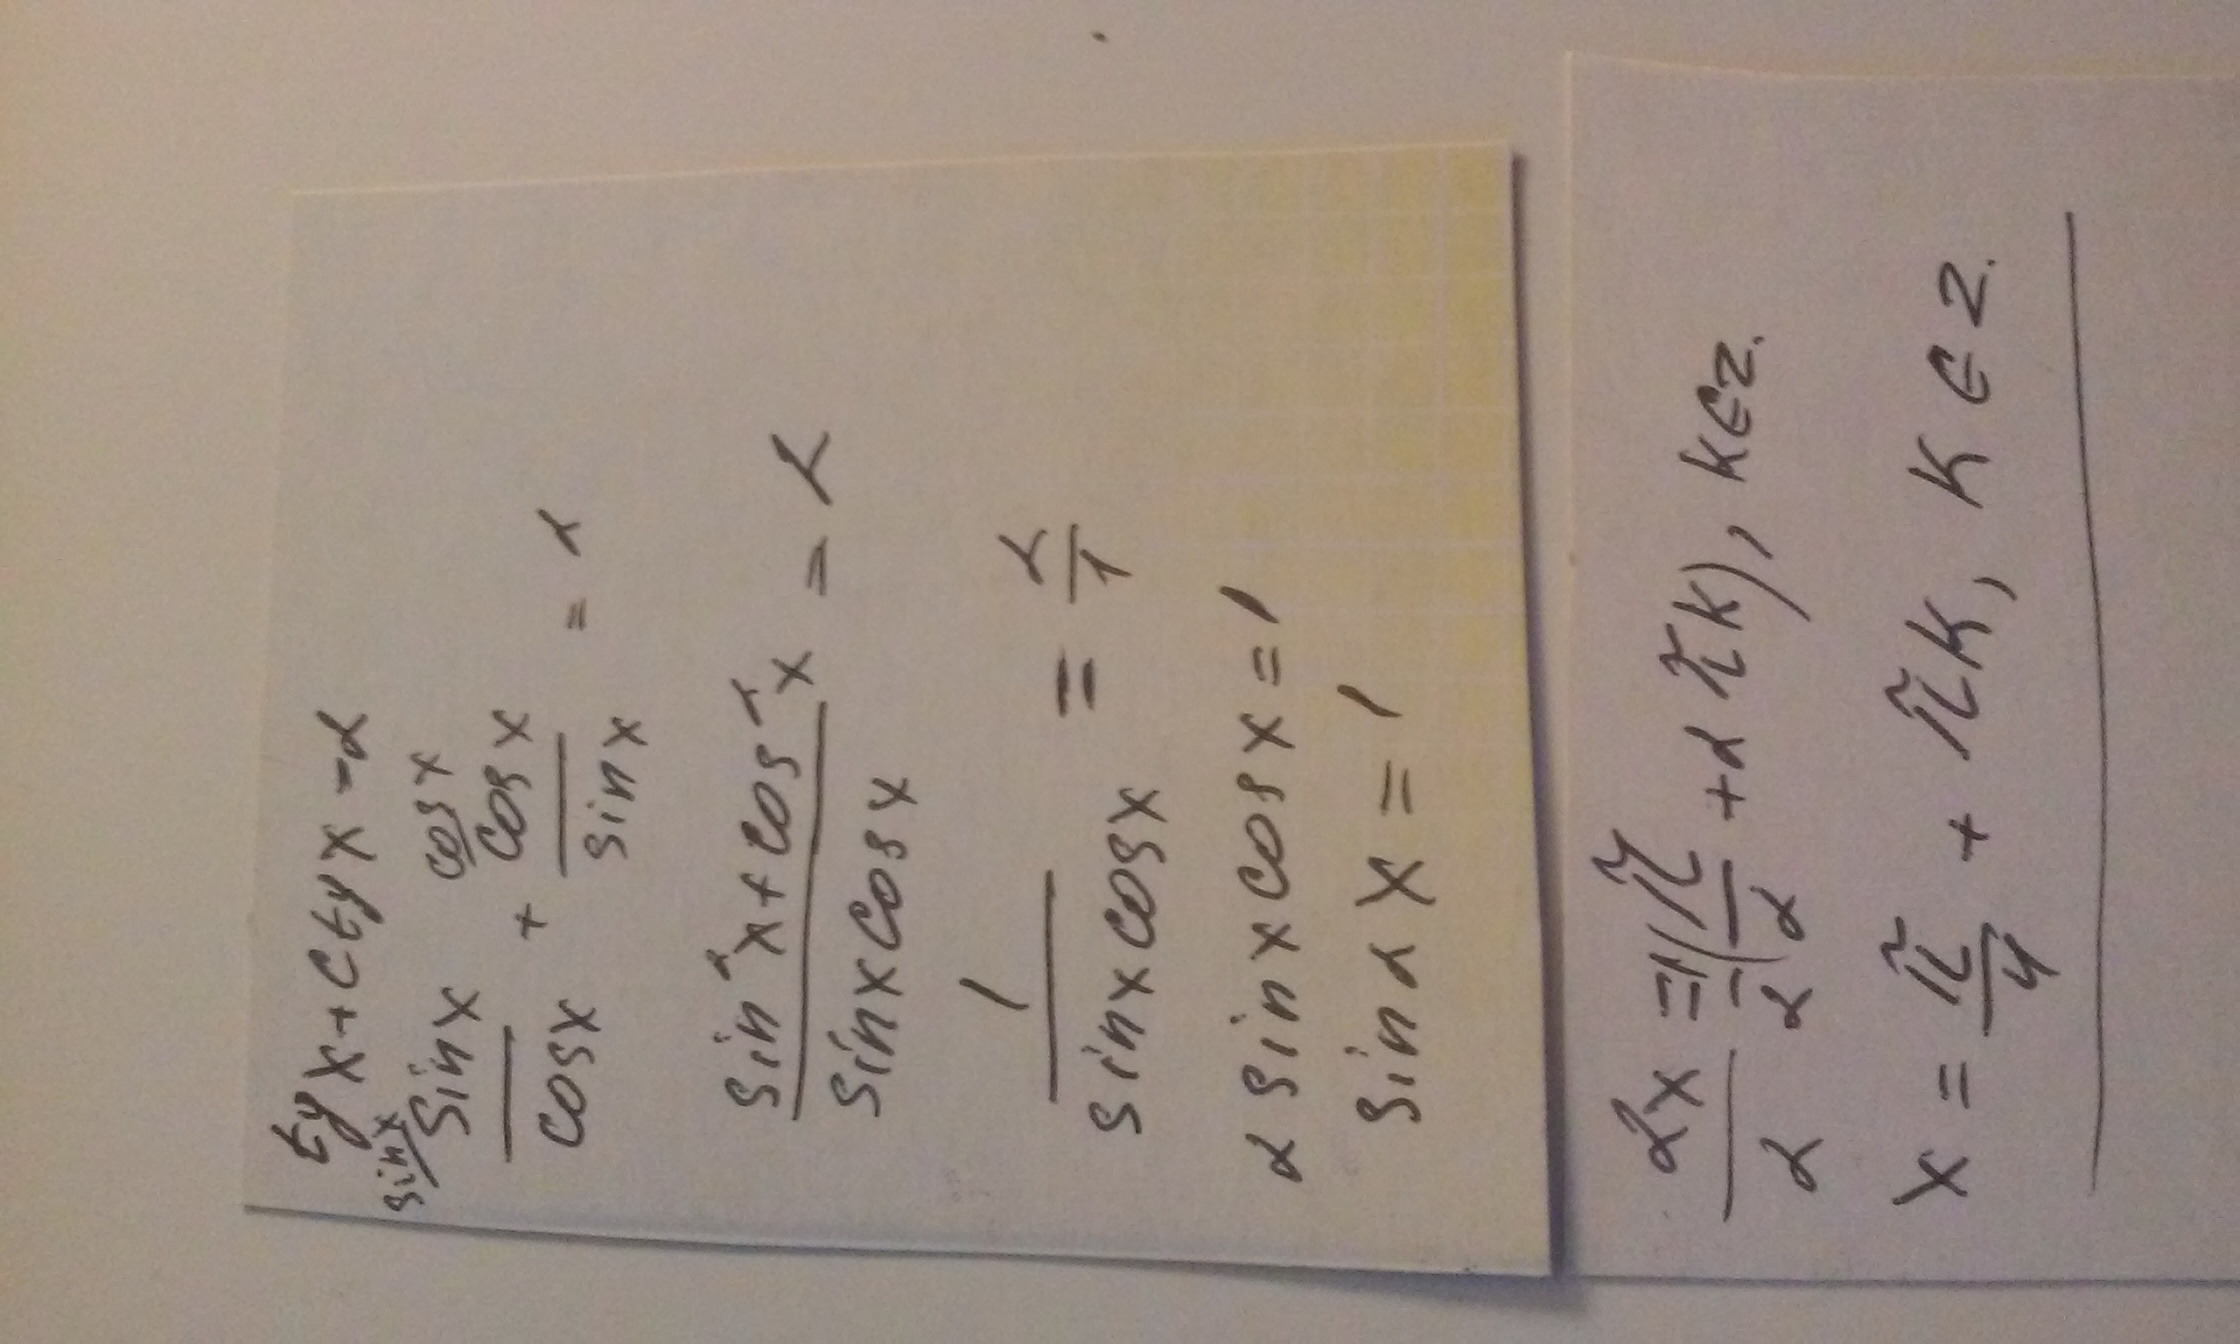 tg x + ctg x = 2
sin x / cos x
sin x / cos x + cos x / sin x = 2
sin² x + cos² x / sin x cos x = 2
1 / sin x cos x = 2 / 1
2 sin x cos x = 1
sin 2 x = 1
2x / 2 = π / 2 + 2 π k), k ∈ Z.
2 2
x = π / 4 + π k, k ∈ Z.